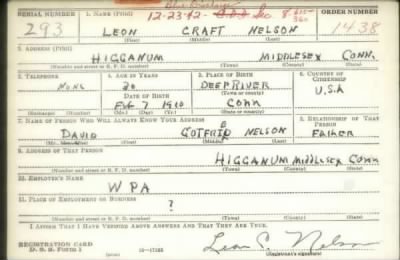 SERIAL NUMBER
1. NAME (Print)
ORDER NUMBER
12-23-42
293
LEON CRAFT NELSON
1438
2. ADDRESS (Print)
HIGGANUM MIDDLESEX CONN.
(Number and street or R. F. D. number) (Town) (County) (State)
3. TELEPHONE
4. AGE IN YEARS
5. PLACE OF BIRTH
6. COUNTRY OF CITIZENSHIP
NONE
30
DEEP RIVER
U.S.A
DATE OF BIRTH
FEB 7 1910
CONN
7. NAME OF PERSON WHO WILL ALWAYS KNOW YOUR ADDRESS
8. RELATIONSHIP OF THAT PERSON
DAVID GOTFRID NELSON FATHER
9. ADDRESS OF THAT PERSON
HIGGANUM MIDDLESEX CONN
(Number and street or R. F. D. number) (Town) (County) (State)
10. EMPLOYER'S NAME
WPA
11. PLACE OF EMPLOYMENT OR BUSINESS
?
(Number and street or R. F. D. number) (Town) (County) (State)
I AFFIRM THAT I HAVE VERIFIED ABOVE ANSWERS AND THAT THEY ARE TRUE.
REGISTRATION CARD
D. S. S. Form 1
Leon C. Nelson
(Registrant's signature)